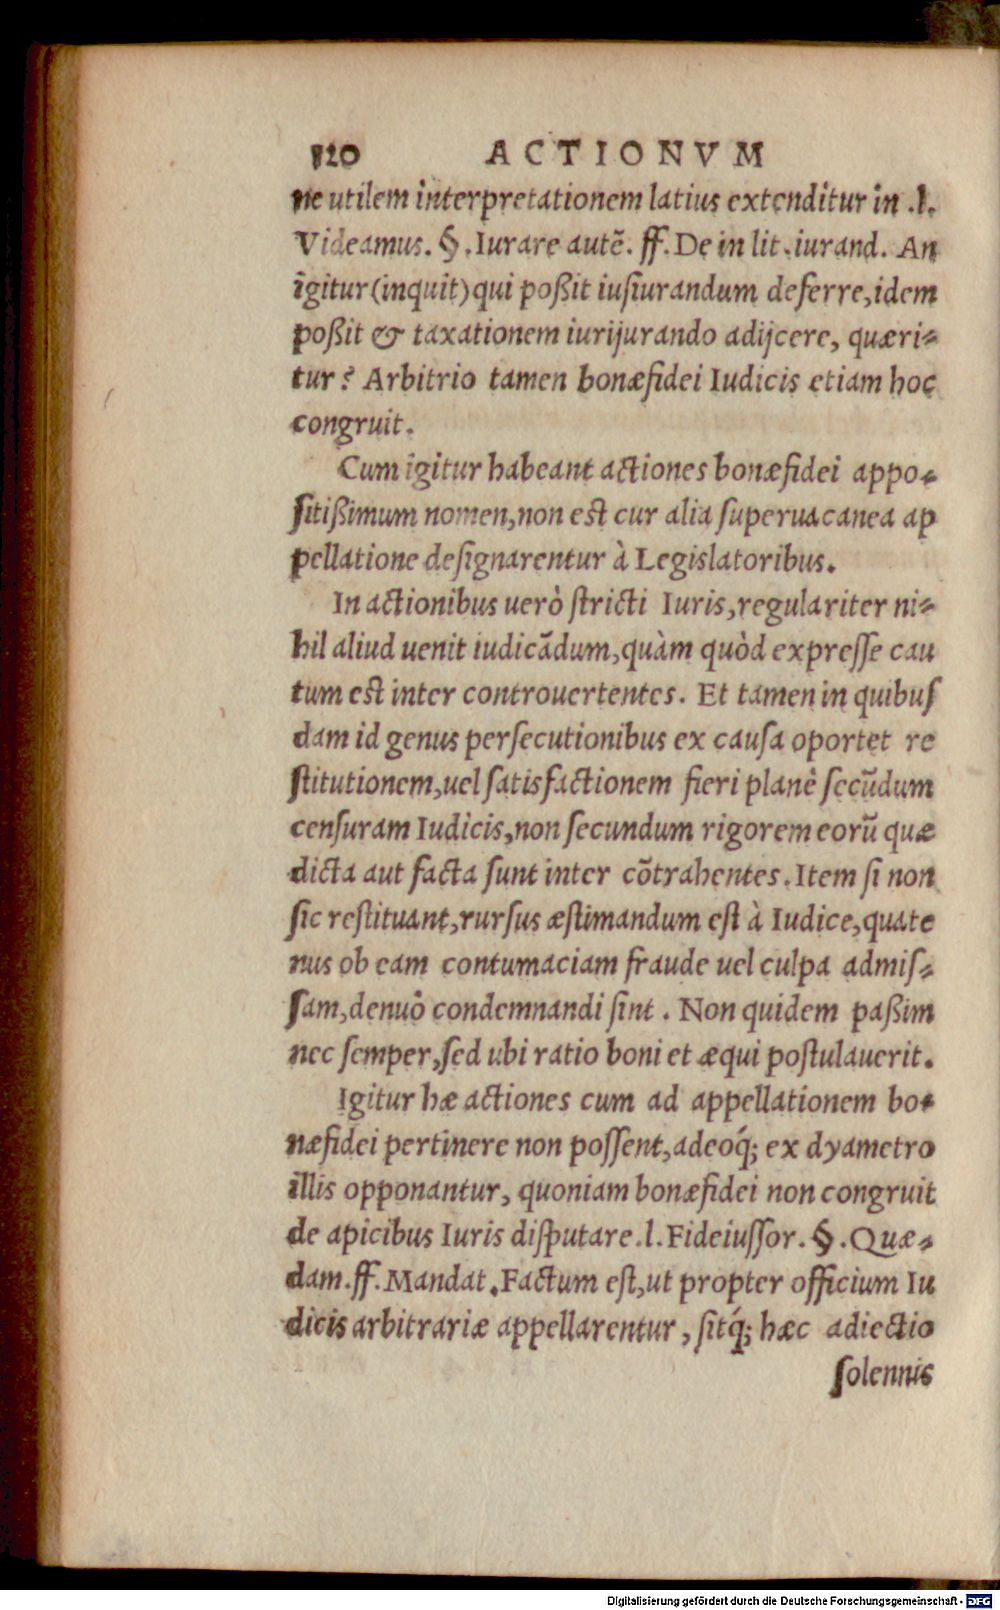 120 ACTIONVM
ne utilem interpretationem latius extenditur in .l.
Videamus. §. Iurare autẽ. ff. De in lit. iurand. An
igitur (inquit) qui poßit iuſiurandum deferre, idem
poßit & taxationem iurijurando adijcere, quæri-
tur? Arbitrio tamen bonæfidei Iudicis etiam hoc
congruit.
Cum igitur habeant actiones bonæfidei appo-
ſitißimum nomen, non est cur alia ſuperuacanea ap
pellatione deſignarentur à Legislatoribus.
In actionibus uerò ſtricti Iuris, regulariter ni-
hil aliud uenit iudicãdum, quàm quòd expreſſe cau
tum est inter controuertentes. Et tamen in quibuſ
dam id genus perſecutionibus ex cauſa oportet re
ſtitutionem, uel ſatisfactionem fieri planè ſecũdum
cenſuram Iudicis, non ſecundum rigorem eorũ quæ
dicta aut facta ſunt inter cõtrahentes. Item ſi non
ſic reſtituant, rurſus æſtimandum eſt à Iudice, quate
nus ob eam contumaciam fraude uel culpa admiſ-
ſam, denuò condemnandi ſint. Non quidem paßim
nec ſemper, ſed ubi ratio boni et æqui poſtulauerit.
Igitur hæ actiones cum ad appellationem bo-
næfidei pertinere non poſſent, adeoq́; ex dyametro
illis opponantur, quoniam bonæfidei non congruit
de apicibus Iuris diſputare. l. Fideiuſſor. §. Quæ-
dam. ff. Mandat. Factum eſt, ut propter officium Iu
dicis arbitrariæ appellarentur, ſitq́; hæc adiectio
ſolennis
Digitalisierung gefördert durch die Deutsche Forschungsgemeinschaft - DFG